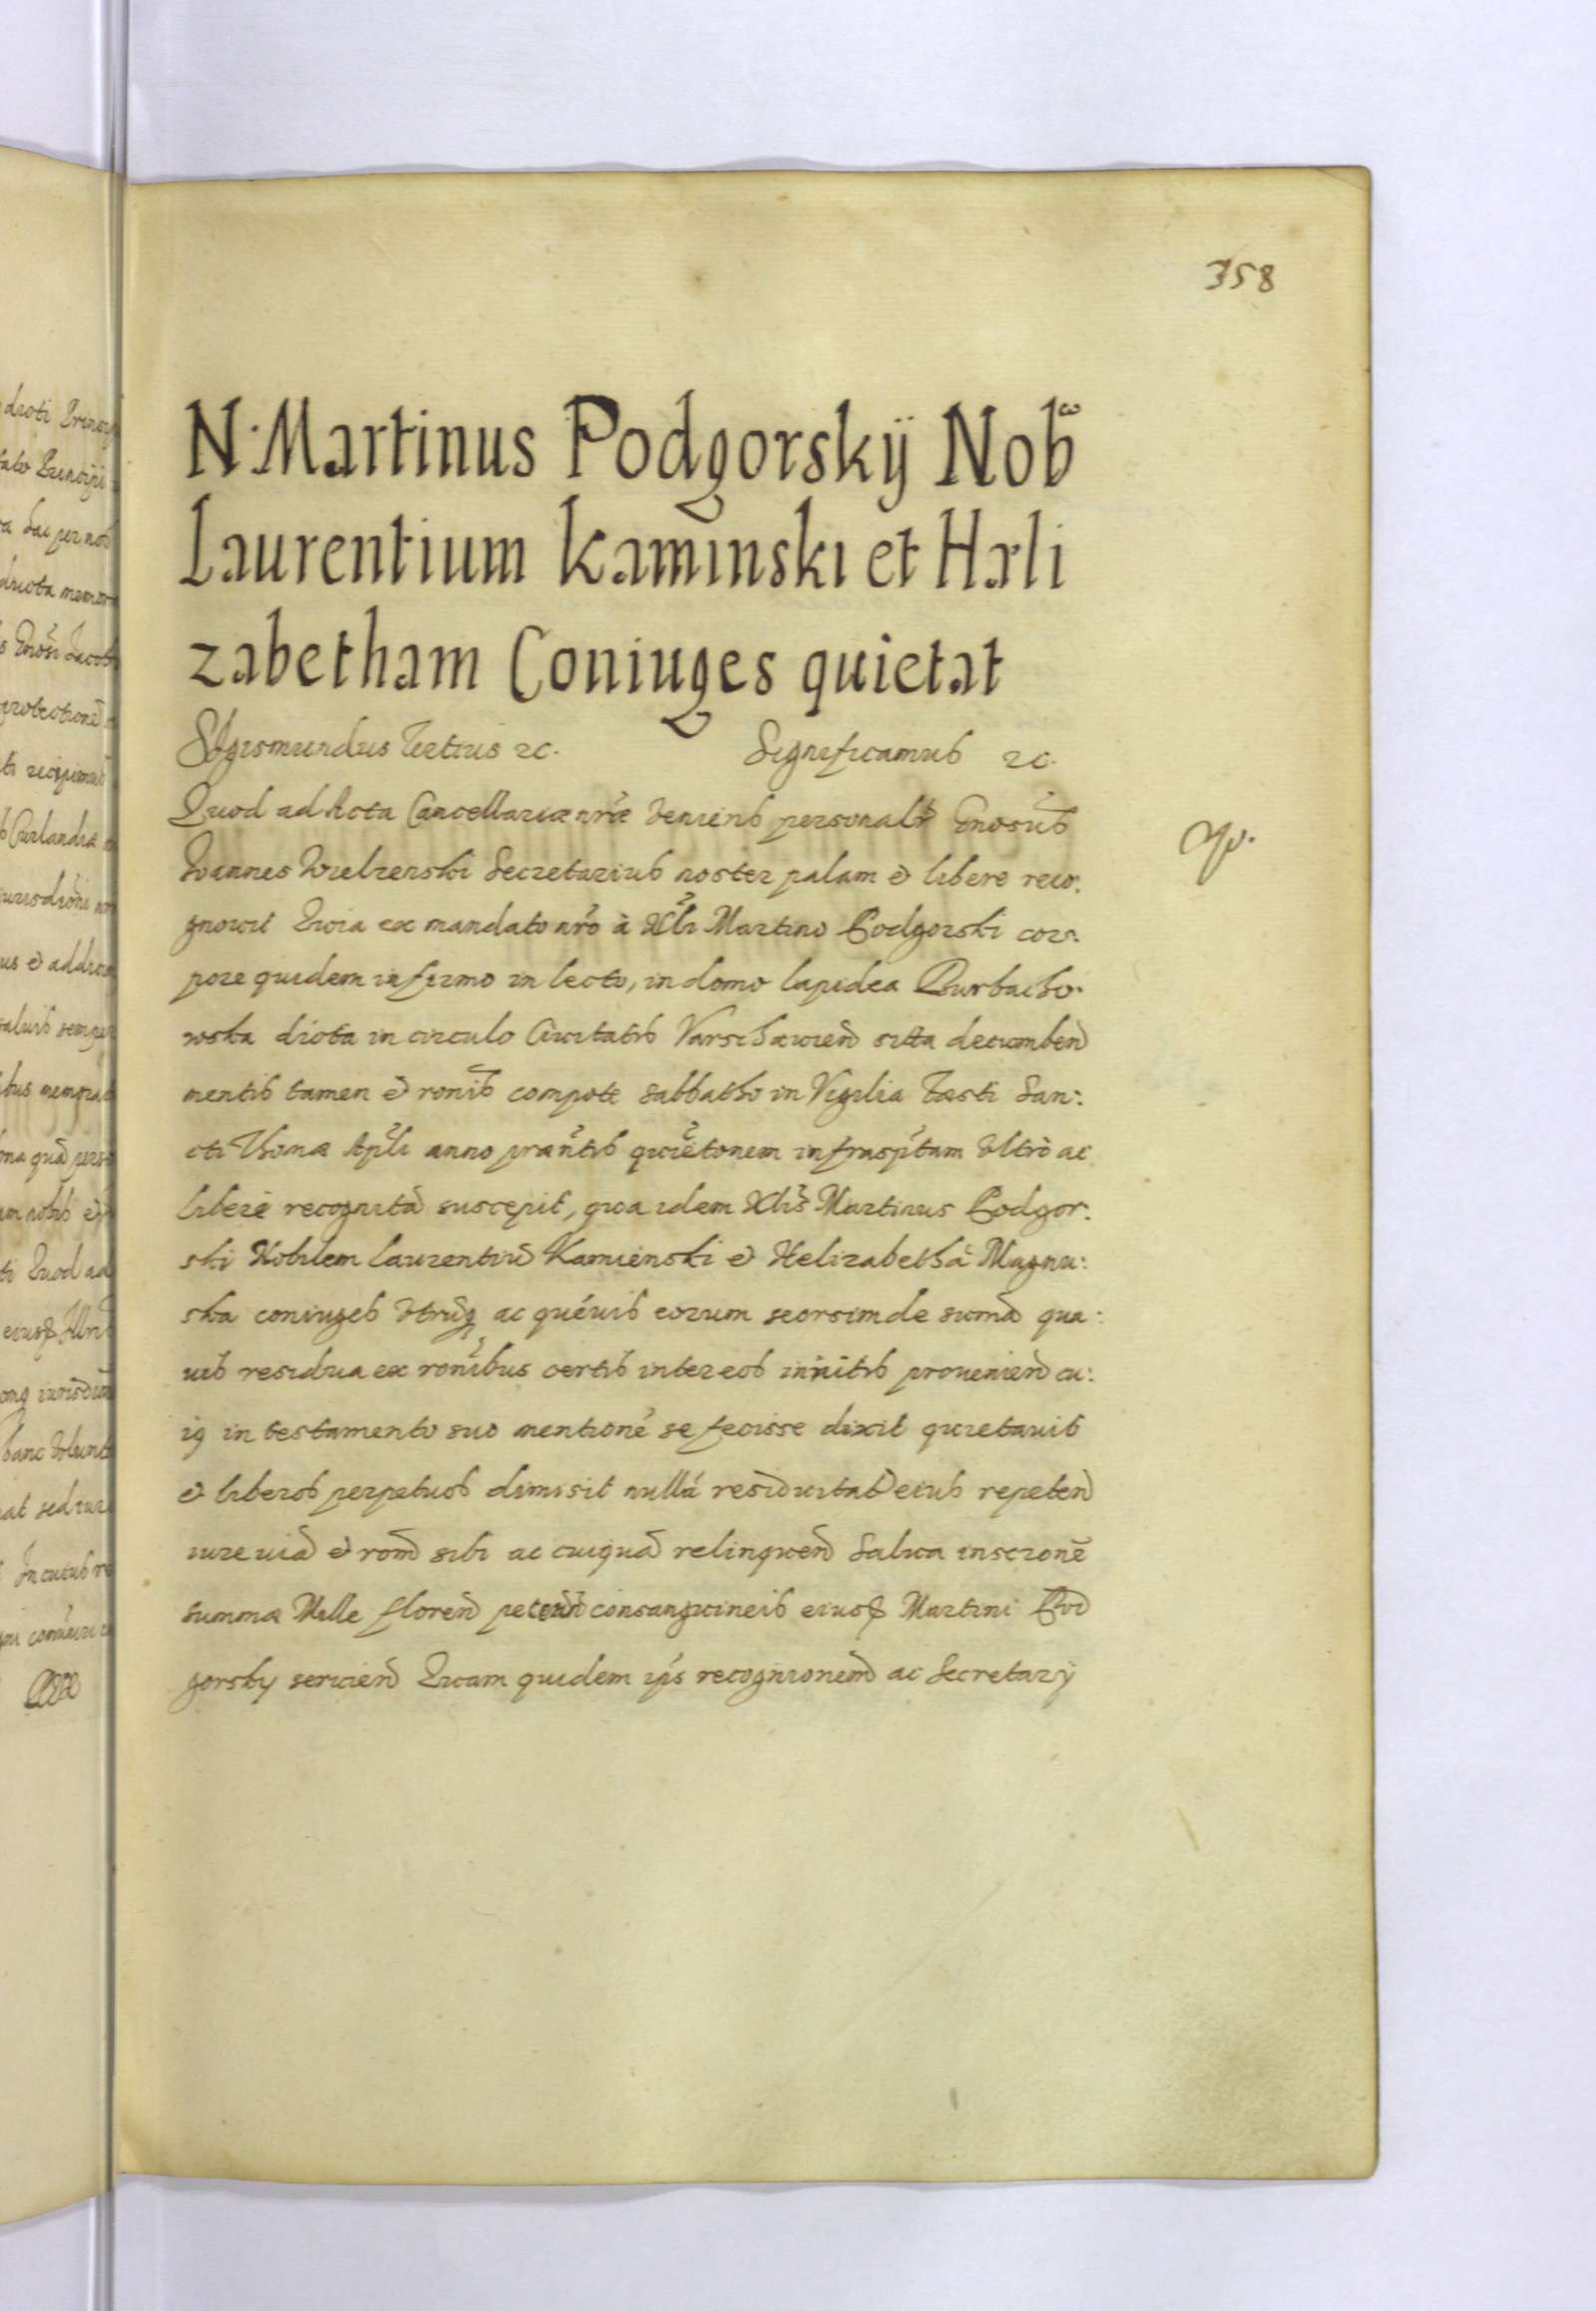 358
N. Martinus Podgorskÿ Nob̃
Laurentium Kaminski et Hæli
zabetham Coniuges quietat
Sigismundus Tertius ꝛc. Significamus ꝛc.
Quod ad Acta Cancellariæ nr̃æ veniens personalr̃ Gnosus̃
Ioannes Wielzenski Secretarius noster palam et libere reco:
gnouit Quia ex mandato nr̃o à Nl̃i Martino Podgorski cor:
pore quidem infirmo in lecto, in domo lapidea
wska dicta in circulo Ciuitatis Varschauien̄ sitta decumben̄
mentis tamen et ron̄is compote sabbatho in Vigilia Faesti San:
cti Thomæ Apl̃i anno præñtis quieto̅nem infrasp̃tam vltrò ac
liberè recognitā suscepit, quia idem Nl̃is Martinus Podgor:
ski Nobilem Laurentiū Kamienski et Helizabethā Magnu:
ska coniuges vtrũq ac quéuis eorum seorsim de sumā qua:
uis residua ex ron̄ibus certis inter eos initis prouenien̄ cu:
iq in testamento suo mentionē se fecisse dixit quietauit
et liberos perpetuos dimisit nullā residuitat̄ eius repeten̄
iure uiā et rom̄ sibi ac cuiquā relinquen̄ Salua inscronē
summæ Mille floren̄ consanguineis eiusd Martini Pod
gorsky seruien̄ Quam quidem ip̃s recognionem̄ ac Secretarÿ